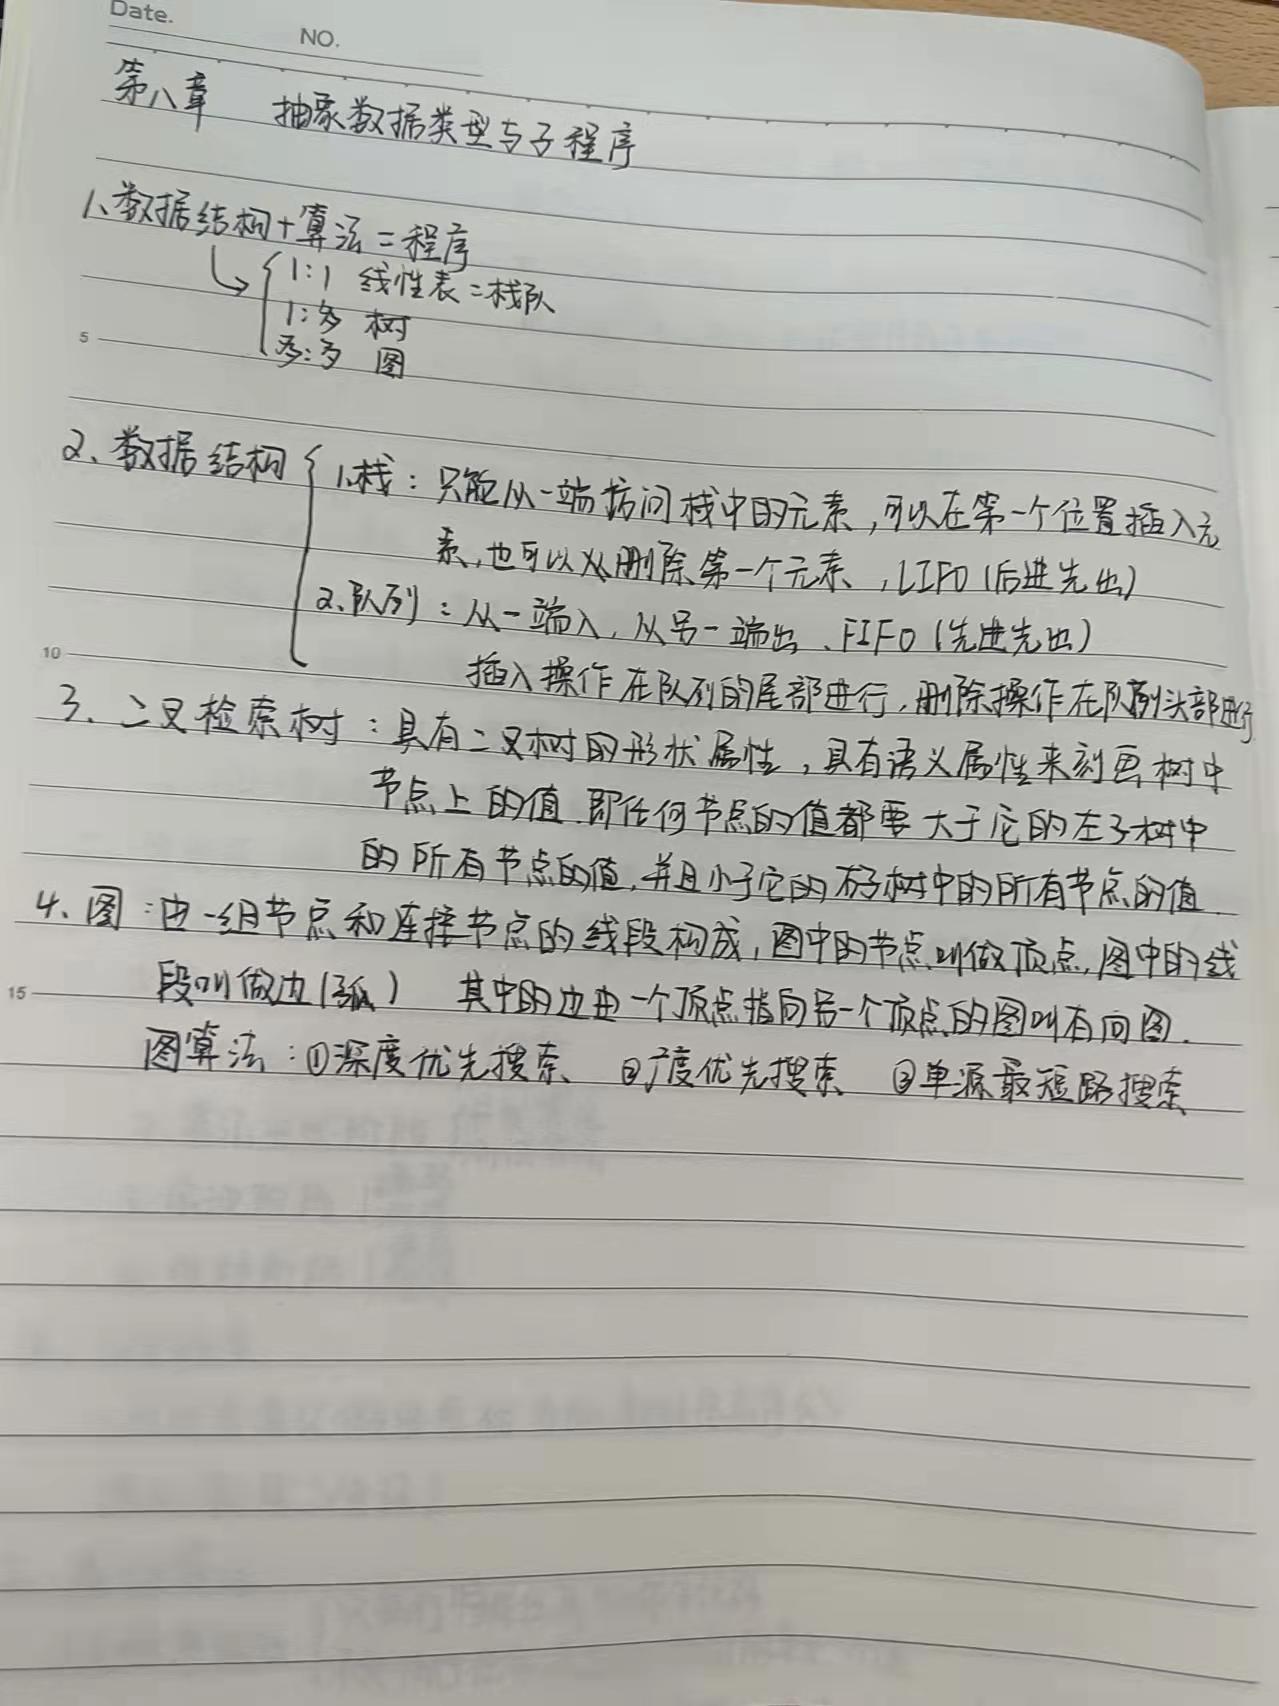 Date.
NO.
第八章 抽象数据类型与子程序
1、数据结构+算法=程序
1:1 线性表=栈队
1:多 树
5
多:多 图
2、数据结构
1.栈：只能从一端访问栈中的元素，可以在第一个位置插入元
素，也可以从删除第一个元素，LIFO（后进先出）
2、队列：从一端入，从另一端出、FIFO（先进先出）
10
插入操作在队列的尾部进行，删除操作在队列头部进行
3、二叉检索树：具有二叉树的形状属性，具有语义属性来刻画树中
节点上的值.即任何节点的值都要大于它的左子树中
的所有节点的值，并且小于它的右子树中的所有节点的值.
4、图：由一组节点和连接节点的线段构成，图中的节点叫做顶点，图中的线
15
段叫做边（弧） 其中的边由一个顶点指向另一个顶点的图叫有向图.
图算法：①深度优先搜索 ②广度优先搜索 ③单源最短路搜索